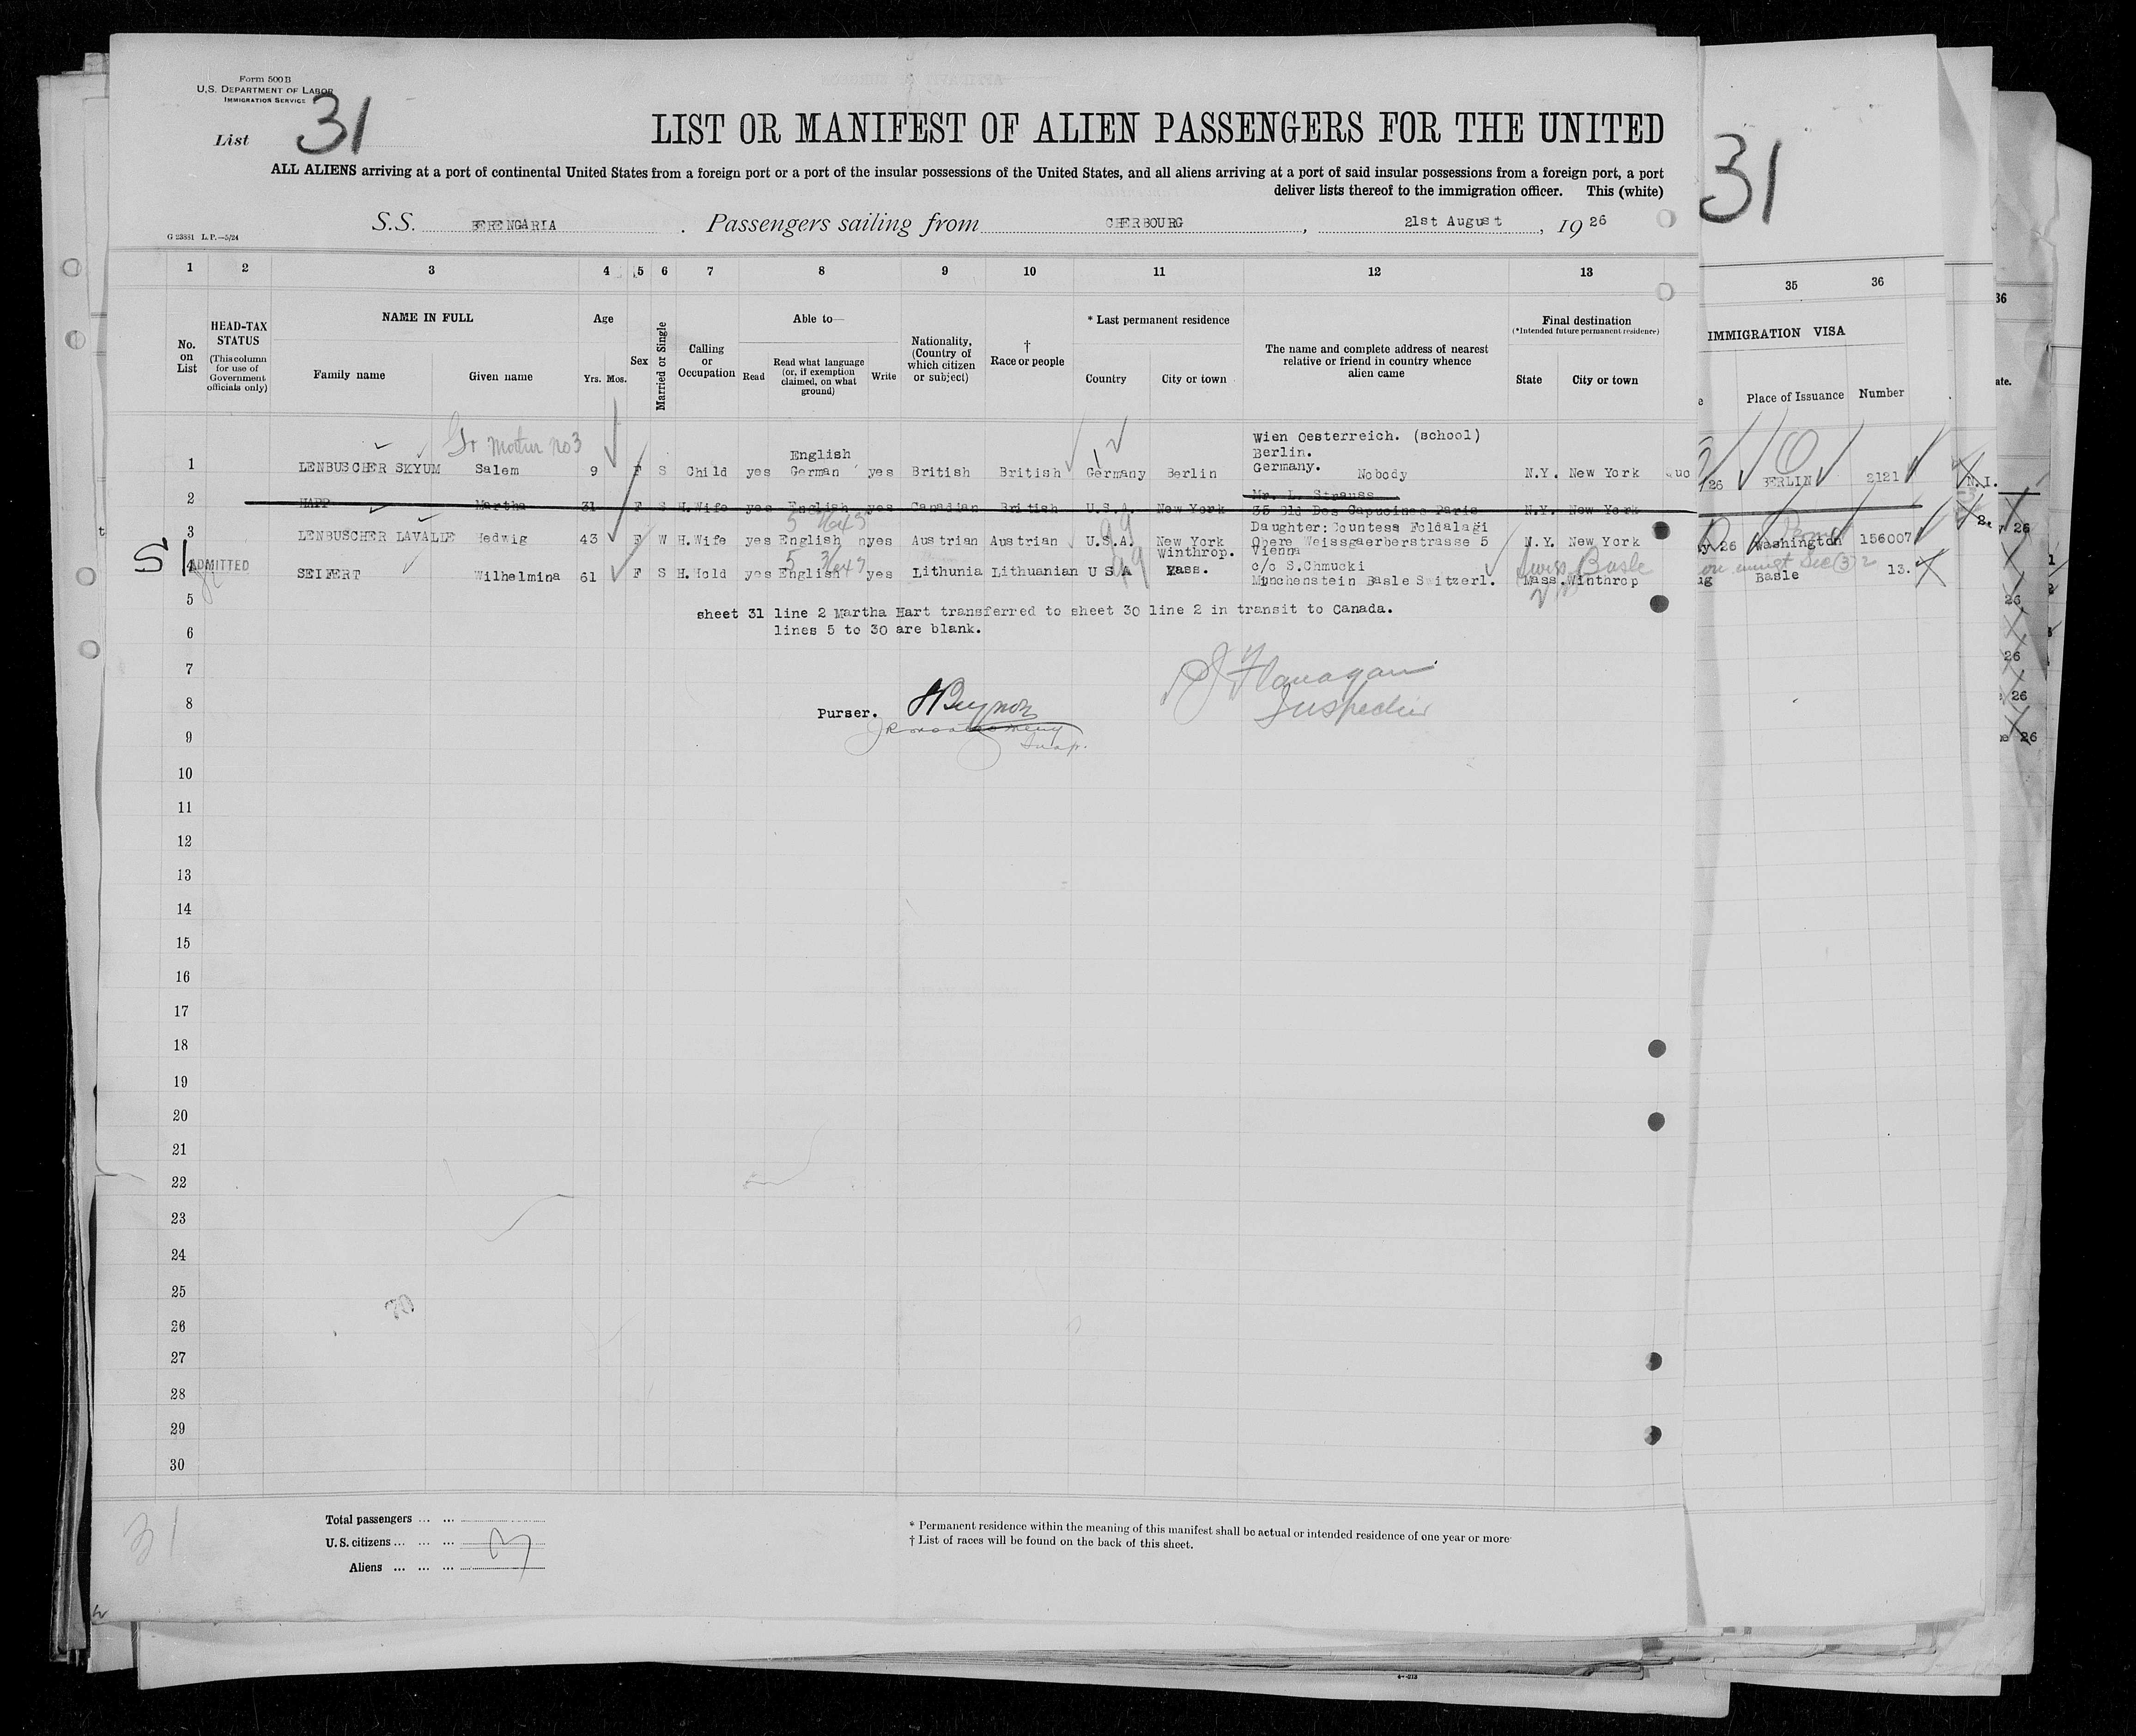 Form 500 B
U.S. DEPARTMENT OF LABOR
IMMIGRATION SERVICE
List 31
LIST OR MANIFEST OF ALIEN PASSENGERS FOR THE UNITED
ALL ALIENS arriving at a port of continental United States from a foreign port or a port of the insular possessions of the United States, and all aliens arriving at a port of said insular possessions from a foreign port, a port
deliver lists thereof to the immigration officer. This (white)
S.S. BERENGARIA . Passengers sailing from CHERBOURG , 21st August , 19 26
G 23881 L.P.—5/24
1 2 3 4 5 6 7 8 9 10 11 12 13
No. on List
HEAD-TAX STATUS (This column for use of Government officials only)
NAME IN FULL
Family name Given name
Age
Yrs. Mos.
Sex
Married or Single
Calling or Occupation
Able to—
Read Read what language (or, if exemption claimed, on what ground) Write
Nationality, (Country of which citizen or subject)
† Race or people
* Last permanent residence
Country City or town
The name and complete address of nearest relative or friend in country whence alien came
Final destination
(*Intended future permanent residence)
State City or town
Gr mother no 3
Wien Oesterreich. (school)
Berlin.
Germany. Nobody
1 LENBUSCHER SKYUM Salem 9 F S Child yes English German yes British British Germany Berlin N.Y. New York Quo
Mr. L. Strauss
2 HAPP Martha 31 F S H.Wife yes English yes Canadian British U.S.A. New York 35 Bld Des Capucines Paris N.Y. New York
Daughter: Countess Foldalagi
3 LENBUSCHER LAVALLE Hedwig 43 F W H.Wife yes English yes Austrian Austrian U.S.A. New York Obere Weissgaerberstrasse 5 N.Y. New York
Vienna
SI ADMITTED
4 SEIFERT Wilhelmina 61 F S H.Hold yes English yes Lithunia Lithuanian U S A Winthrop. Mass. c/o S.Chmucki
Munchenstein Basle Switzerl. Mass. Winthrop
Swiss Basle
5
sheet 31 line 2 Martha Hart transferred to sheet 30 line 2 in transit to Canada.
lines 5 to 30 are blank.
6
7
Flanagan
Inspector
8
Purser.
Insp.
9
10
11
12
13
14
15
16
17
18
19
20
21
22
23
24
25
26
27
28
29
30
30
31
Total passengers ... ...
U.S. citizens ... ... ...
Aliens ... ... ...
3
* Permanent residence within the meaning of this manifest shall be actual or intended residence of one year or more
† List of races will be found on the back of this sheet.
31
35 36
IMMIGRATION VISA
Place of Issuance Number
26 BERLIN 2121
26 Washington 156007
Basle 13.
N.I.
36
ate.
26
26
26
26
26